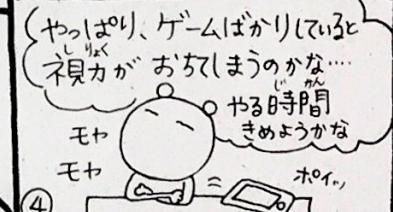 やっぱり、ゲームばかりしていると
視力が おちてしまうのかな‥‥
しりょく
やる時間
じかん
きめようかな
モヤ
モヤ
ポイッ
④